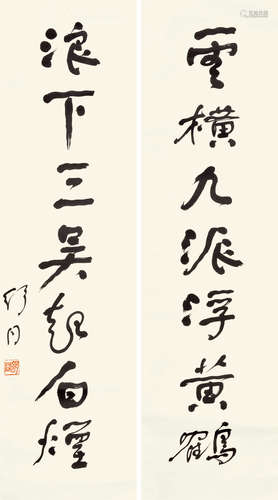 雲橫九派浮黃鶴
浪下三吳起白煙
舒同